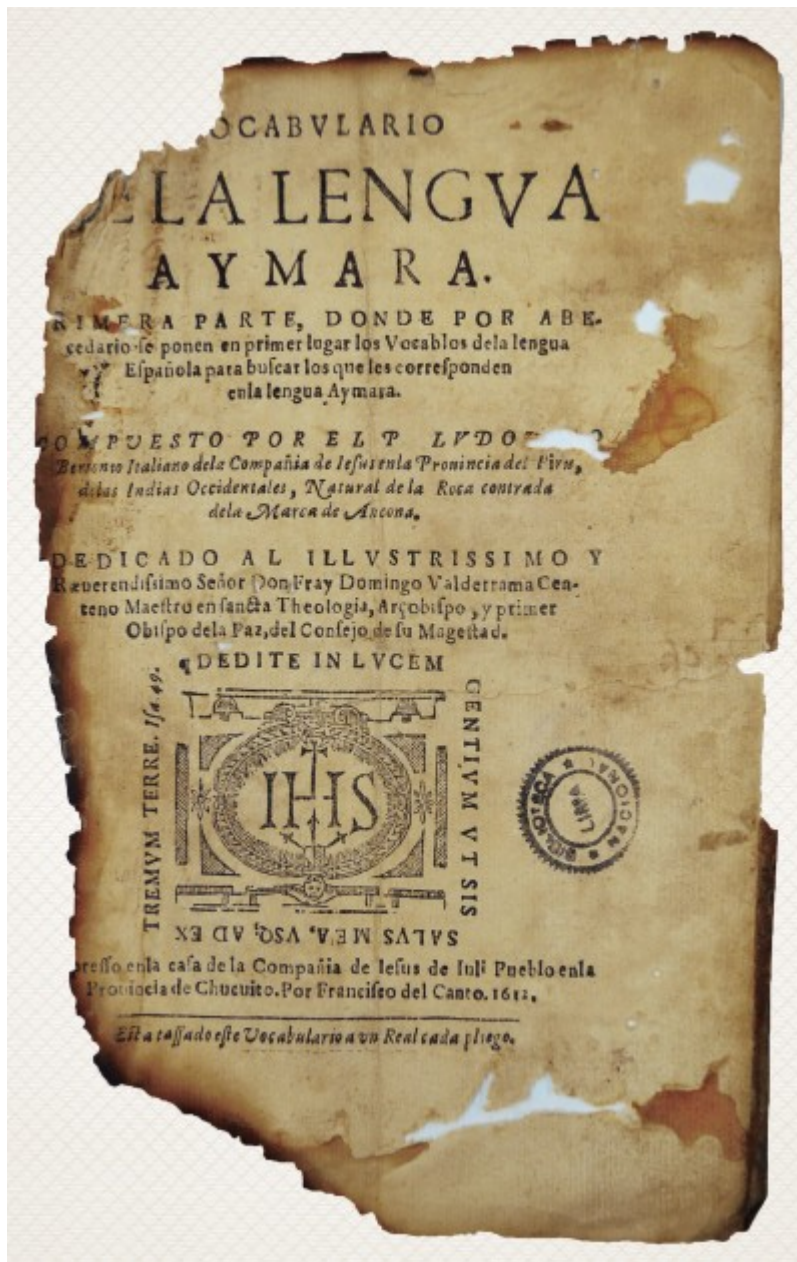 OCABVLARIO
DELA LENGVA
AYMARA.
RIMERA PARTE, DONDE POR ABE-
cedario ſe ponen en primer lugar los Vocablos dela lengua
Eſpañola para buſcar los que les correſponden
enla lengua Aymara.
OMPVESTO POR EL P LVDO
Bertonio Italiano dela Compañia de Ieſus enla Prouincia del Piru,
delas Indias Occidentales, Natural de la Roca contrada
dela Marca de Ancona.
DEDICADO AL ILLVSTRISSIMO Y
Reuerendiſsimo Señor Don Fray Domingo Valderrama Cen-
teno Maeſtro en ſancta Theologia, Arçobiſpo, y primer
Obiſpo dela Paz, del Conſejo de ſu Mageſtad.
¶DEDI TE IN LVCEM
GENTIVM VT SIS
SALVS MEA, VSQ; AD EX
TREMVM TERRE. Iſa. 49.
IHS
BIBLIOTECA NACIONAL
LIMA
preſſo enla caſa de la Compañia de Ieſus de Iuli Pueblo enla
Prouincia de Chucuito. Por Franciſco del Canto. 1612.
Eſta taſſado eſte Vocabulario a vn Real cada pliego.